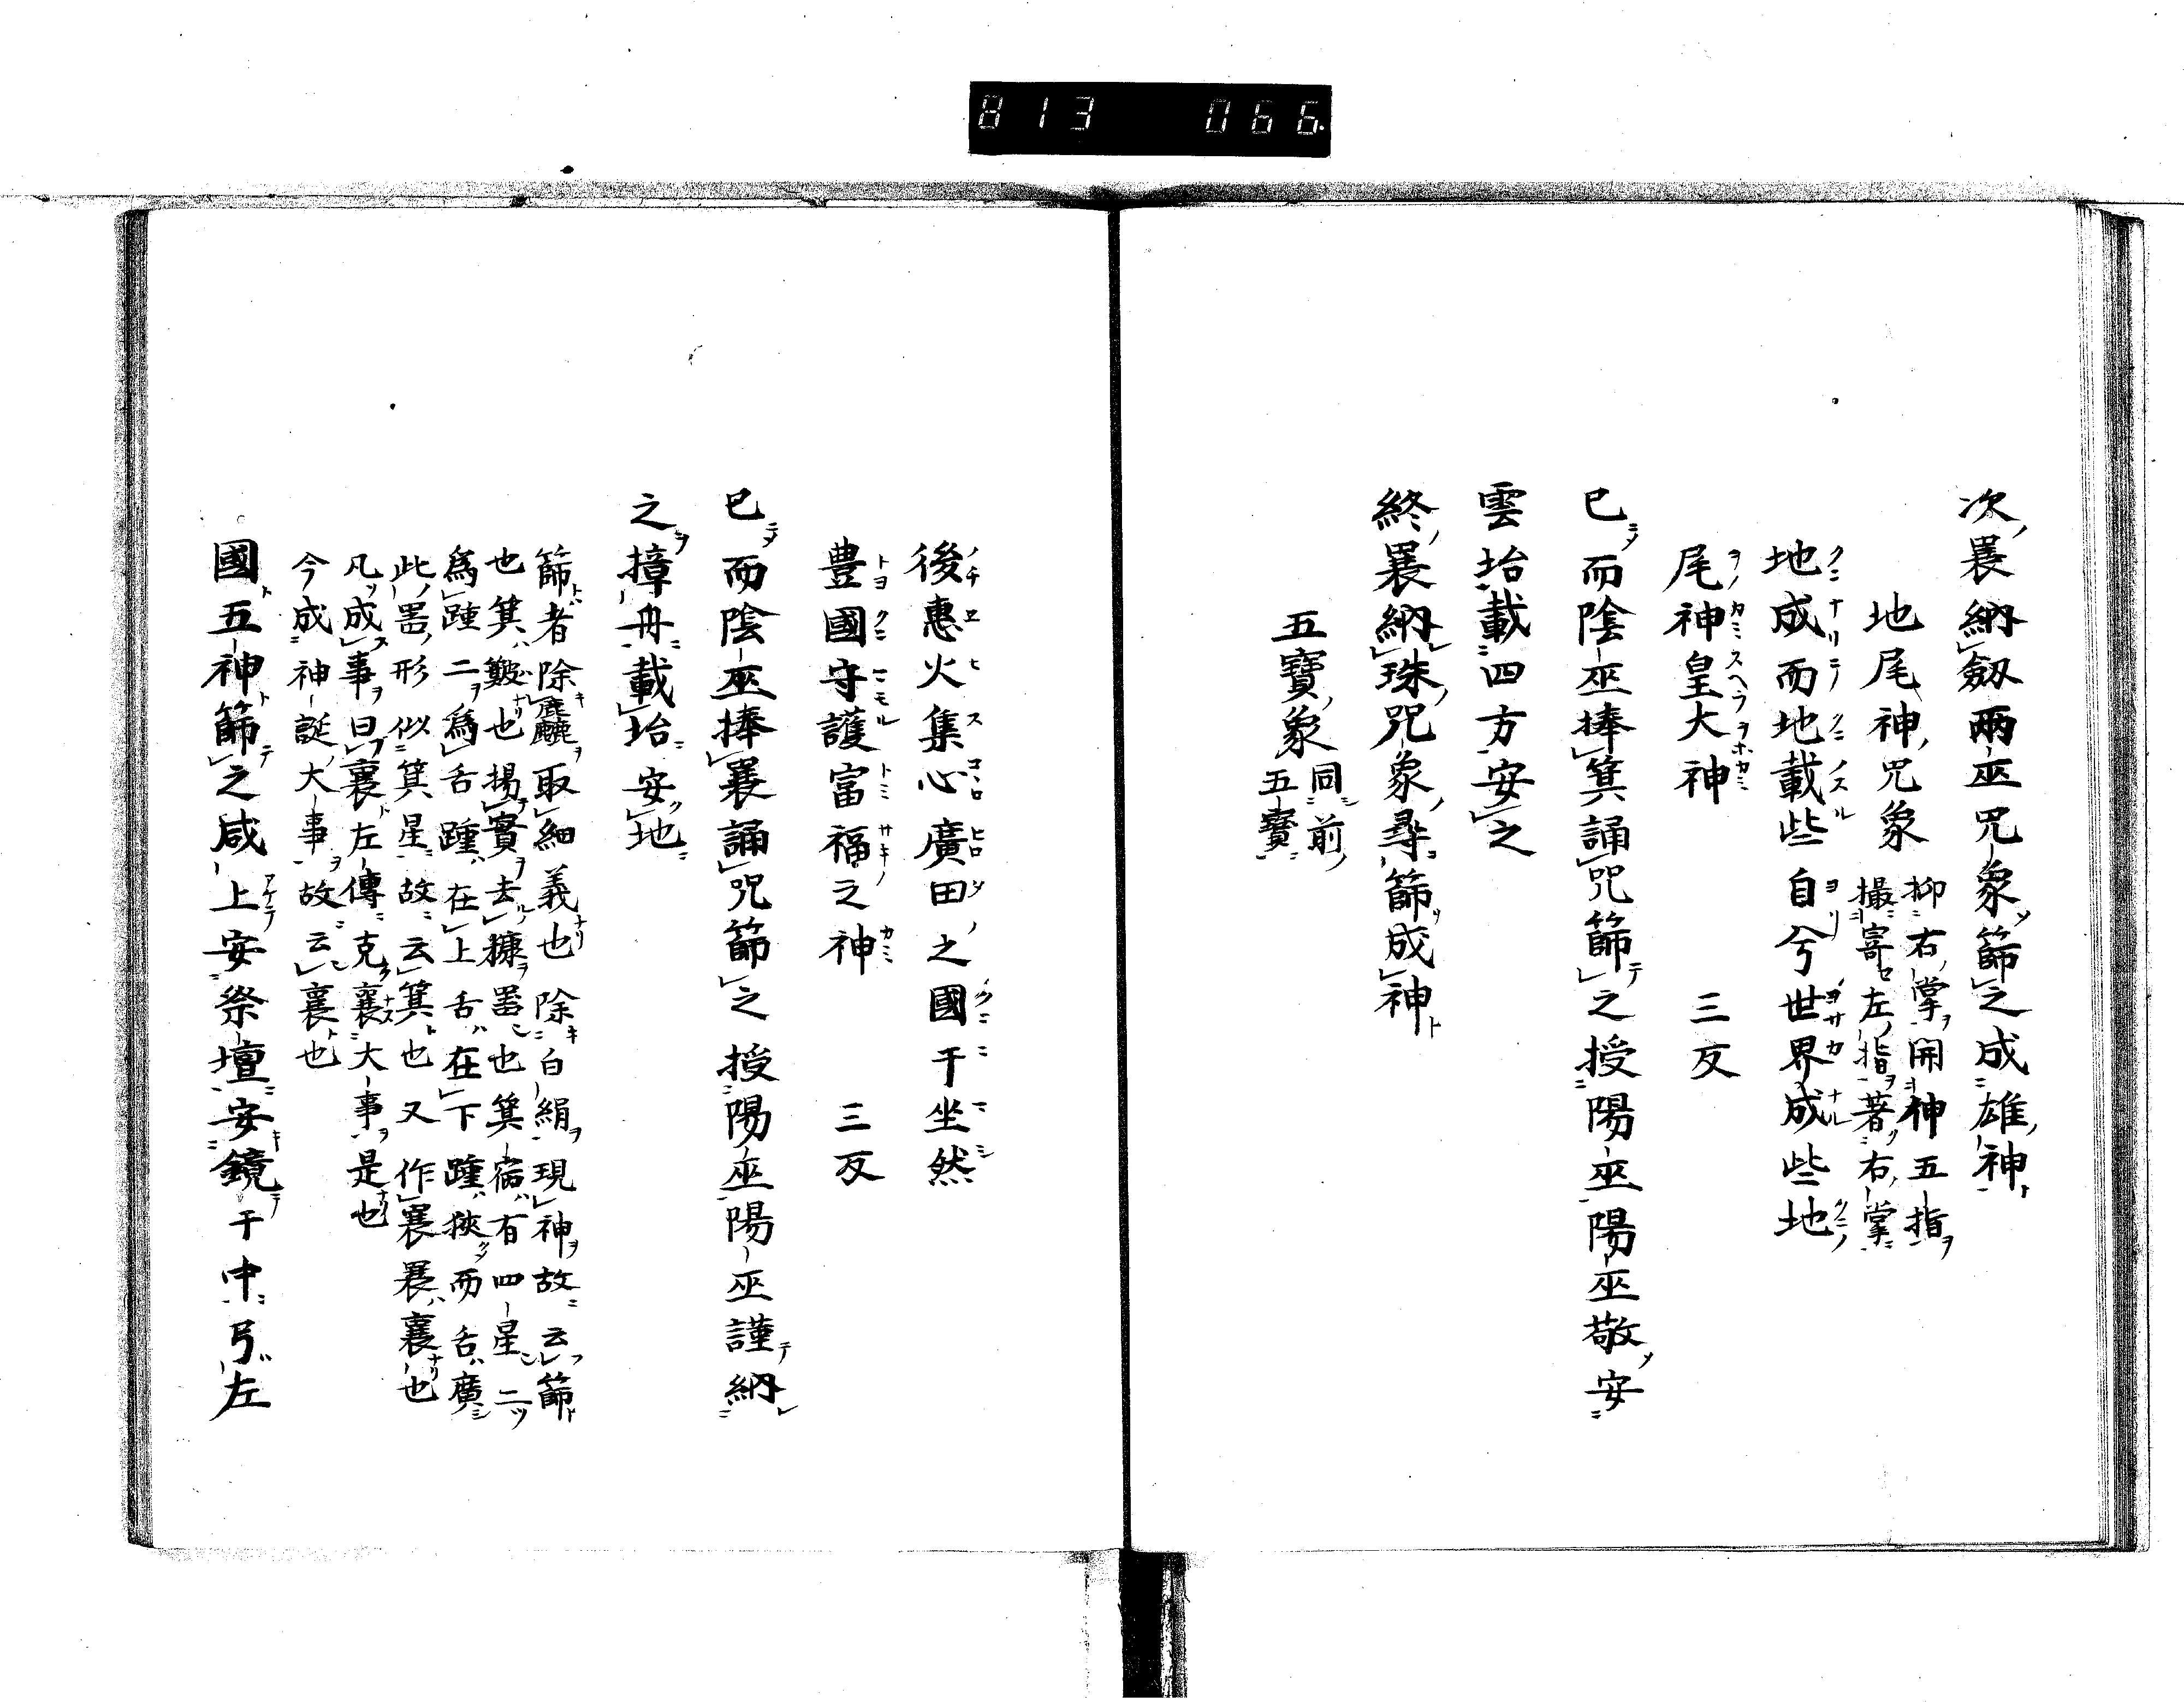 813 066
次褁納劔兩巫咒象篩之成雄神
地尾神咒象
抑右掌開神五指
撮寄左指著右掌
地成而地載些自兮世界成些地
尾神皇大神 三反
已而陰巫捧箕誦咒篩之授陽巫陽巫敬安
雲坮載四方安之
終褁納珠咒象尋篩成神
五寶象
同前
五寶
後惠火集心廣田之國于坐然
豊國守護富福之神 三反
已而陰巫捧褁誦咒篩之授陽巫陽巫謹納
之摚冊載坮安地
篩者除麤取細義也除白絹現神故云篩
也箕簸也揚實去糠噐也箕宿有四星二
爲踵二爲舌踵在上舌在下踵狹而舌廣
此噐形似箕星故云箕也又作褁褁襄也
凡成事曰襄左傳克襄大事是也
今成神誕大事故云襄也
國五神篩之咸上安祭壇安鏡于中弓左